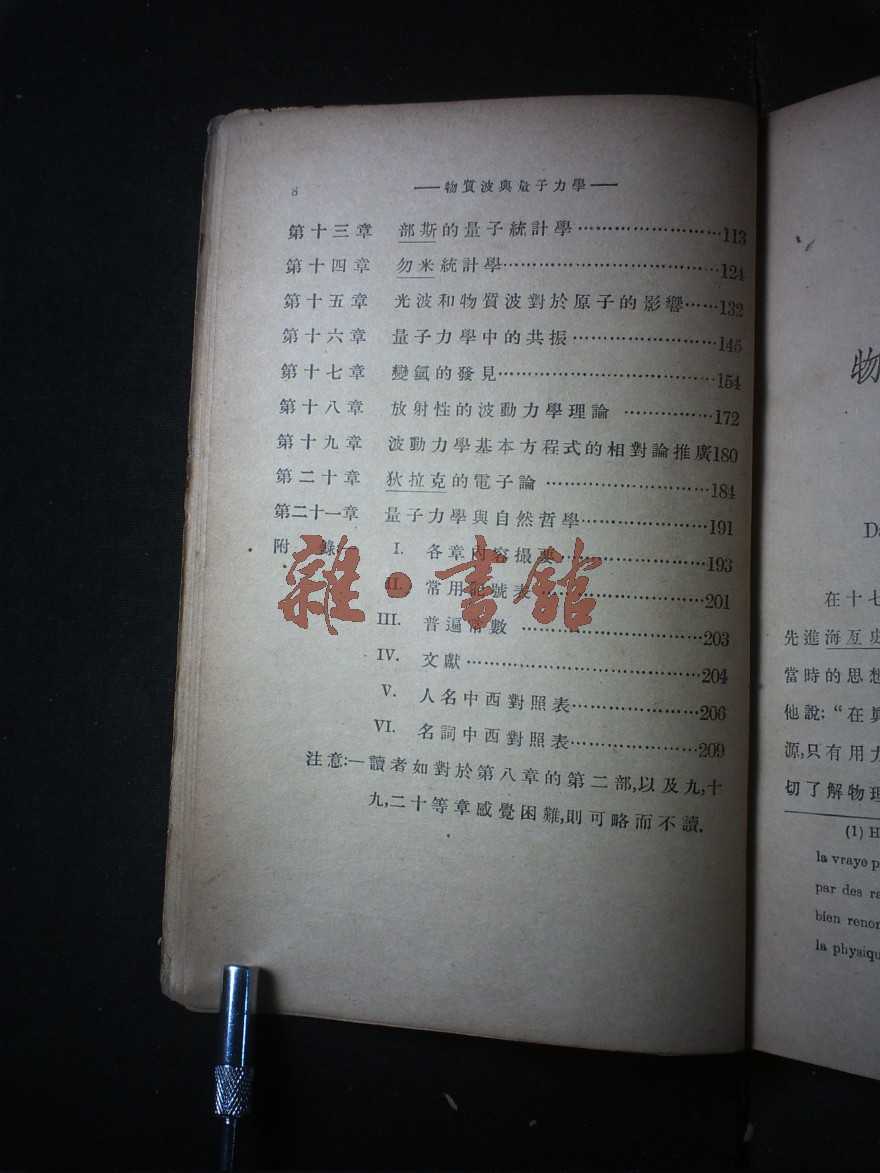 8 ——物質波與量子力學——
第十三章 部斯的量子統計學……………………113
第十四章 勿米統計學………………………………124
第十五章 光波和物質波對於原子的影響……132
第十六章 量子力學中的共振……………………145
第十七章 變氫的發見………………………………154
第十八章 放射性的波動力學理論 ……………172
第十九章 波動力學基本方程式的相對論推廣180
第二十章 狄拉克的電子論………………………184
第二十一章 量子力學與自然哲學……………………191
附 錄:— I. 各章內容撮要……………………193
II. 常用記號表……………………201
III. 普遍常數 ………………………203
IV. 文獻………………………………204
V. 人名中西對照表………………206
VI. 名詞中西對照表………………209
注意:—讀者如對於第八章的第二部,以及九,十
九,二十等章感覺困難,則可略而不讀.
雜·書館
物
Da
在十七
先進海亙史
當時的思想
他說:“在眞
源,只有用力
切了解物理
(1) H
la vraye p
par des ra
bien renon
la physiqu